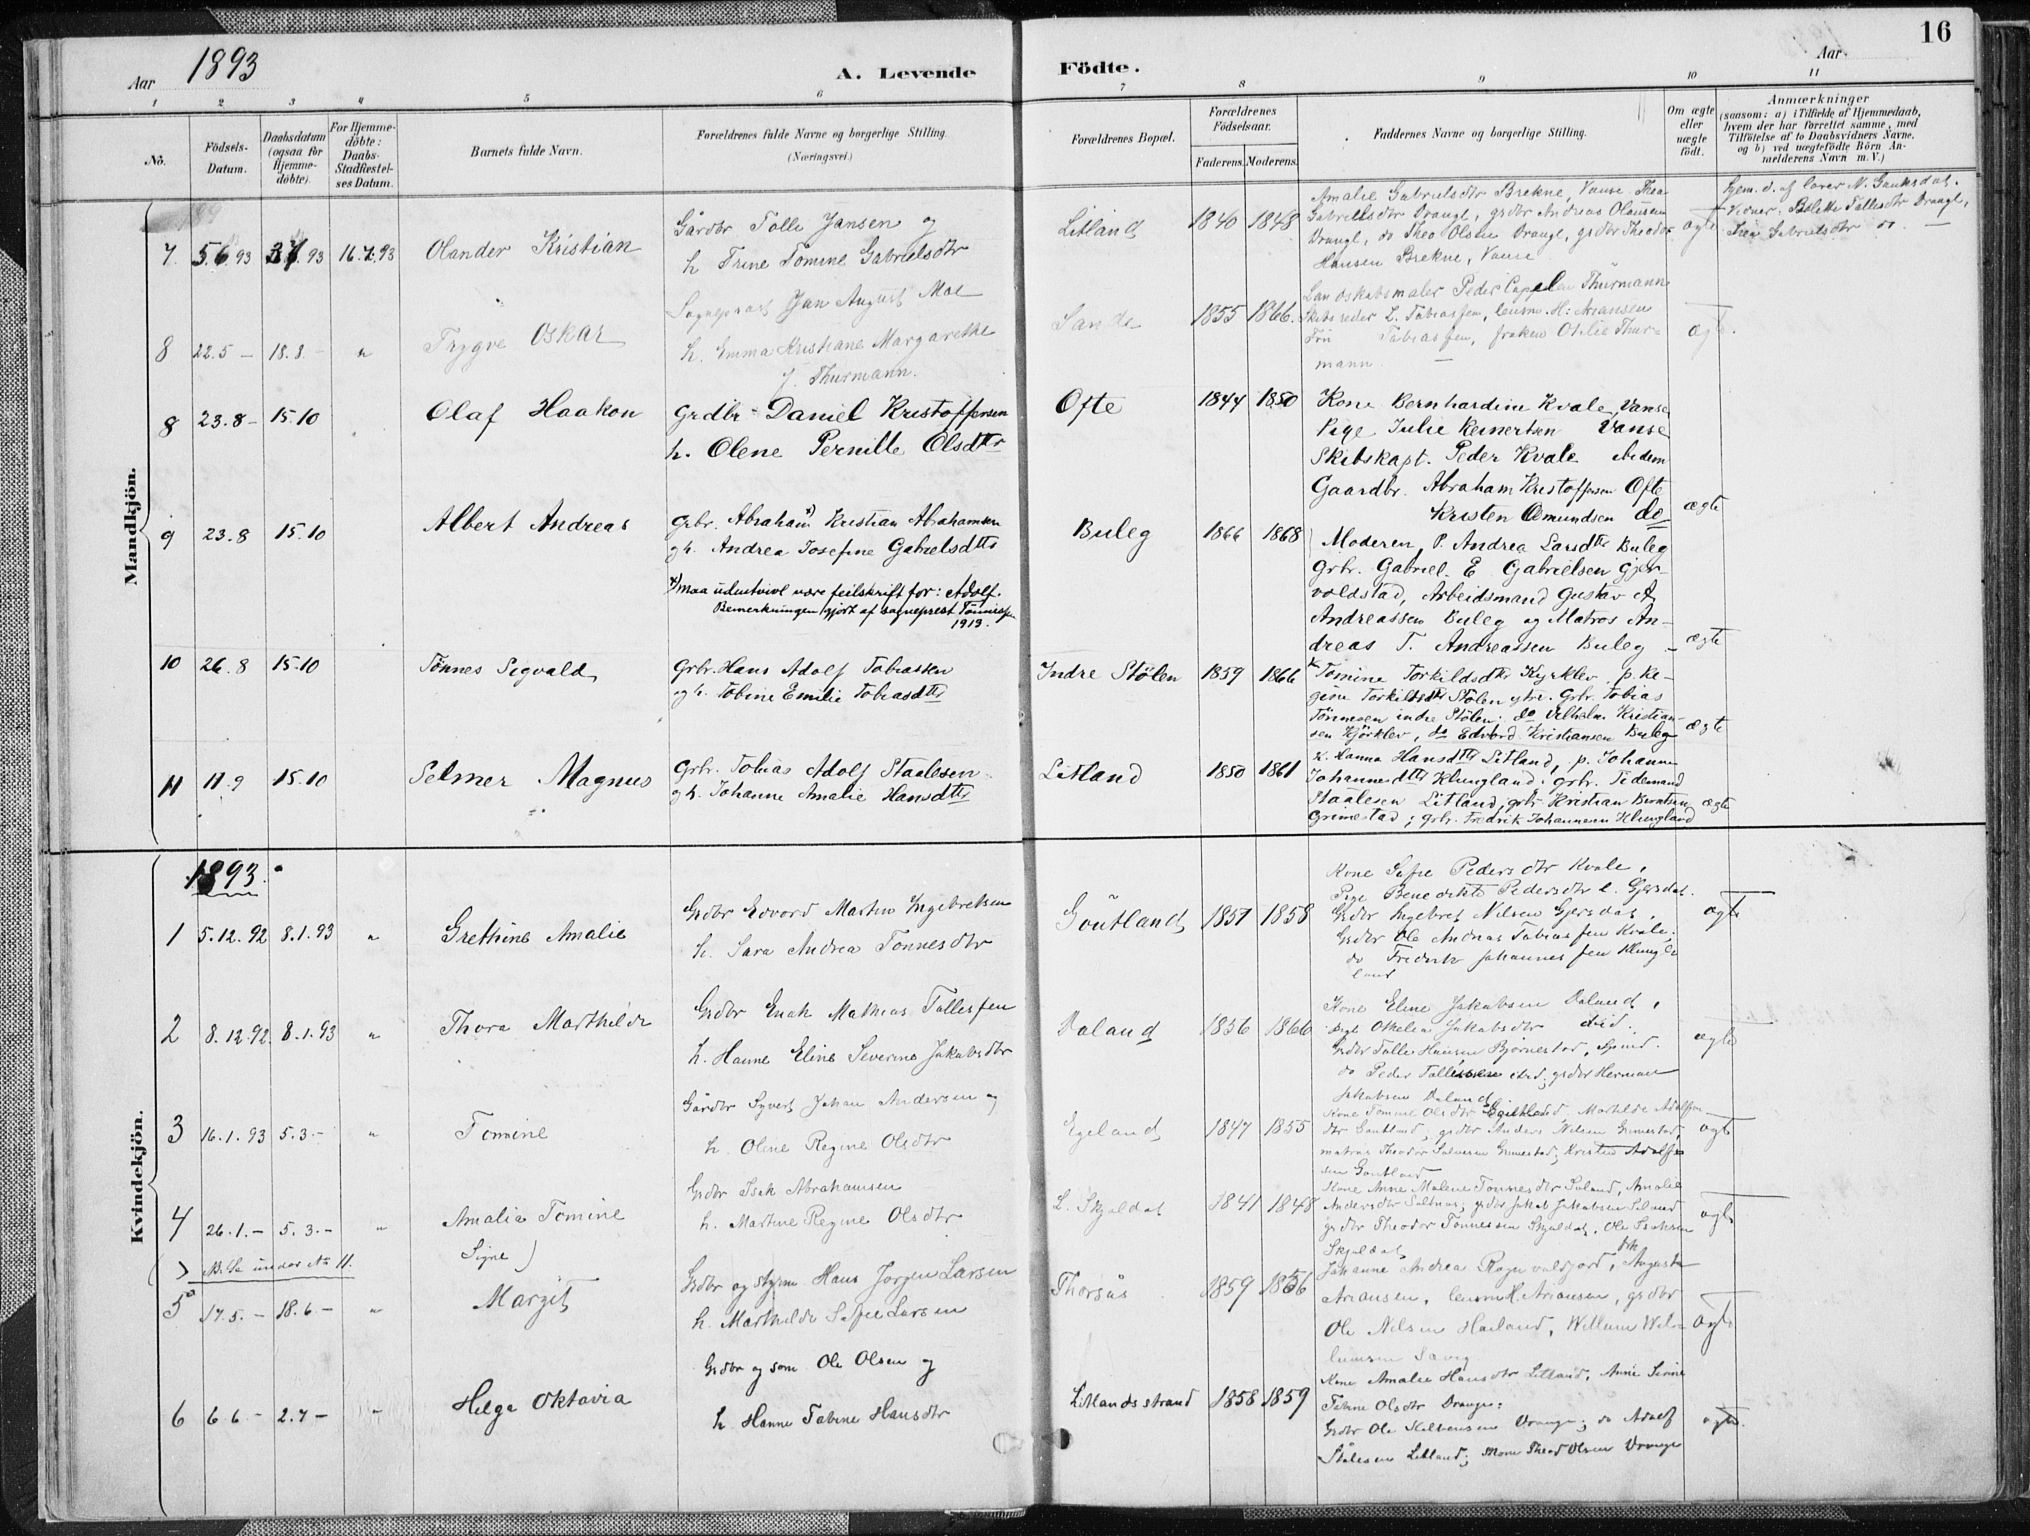 16
Aar 1893
A. Levende Födte.
Aar
1 2 3 4 5 6 7 8 9 10 11
No.
Födsels-Datum.
Daabsdatum (ogsaa for Hjemme-döbte).
For Hjemme-döbte: Daabs-Stadfæstel-ses Datum.
Barnets fulde Navn.
Forældrenes fulde Navne og borgerlige Stilling.
(Næringsvei.)
Forældrenes Bopæl.
Forældrenes Födselsaar.
Faderens. Moderens.
Faddernes Navne og borgerlige Stilling.
Om ægte eller uægte födt.
Anmærkninger
(saasom: a) i Tilfælde af Hjemmedaab,
hvem der har forrettet samme, med
Tilföielse af to Daabsvidners Navne,
og b) ved uægtefödte Börn An-
melderens Navn m. V.)
Mandkjön.
7. 5.6.93 16.7.93 Olander Kristian
Gårdbr Tolle Jansen og
h. Trine Tomine Gabrielsdtr
Litland 1840 1848
Amalie Gabrielsdtr Brekne, Vanse Thea
Gabrielsdtr Drangl, grdbr Andreas Olausen
Drangl, do Theo Olsen Drangl, grdbr Theodor
Hansen Brekne, Vanse
ægte
8 22.5 – 18.8. – " Trygve Oskar
Sogneprest Jan August Moe
h. Emma Kristiane Margarethe
f. Thurmann.
Sande 1855 1866.
Landskabsmaler Peder Cappelen Thurmann
Skibsreder L. Tobiassen, lensm. H. Ariansen
Tobiassen, frøken Otilie Thur-
mann –
ægte.
8 23.8 – 15.10 Olaf Haakon
Grdbr Daniel Kristoffersen
h. Olene Pernille Olsdttr
Ofte 1844 1850
Kone Bernhardine Kvale, Vanse
Pige Julie Reinertsen Vanse
Skibskapt. Peder Kvale ibidem
Gaardbr. Abraham Kristoffersen Ofte
Kristen Osmundsen do
ægte
9 23.8 15.10 Albert Andreas
Grbr. Abraham x) Kristian Abrahamsen
og h. Andrea Josefine Gabrielsdttr
x) maa udentvivl være feilskrift for: Adolf.
Bemerkningen gjort af sogneprest Tønnessen
1913.
Buleg 1866 1868
Moderen, P. Andrea Larsdttr Buleg
Grbr. Gabriel E Gabrielsen Gjer-
voldstad, Arbeidsmand Gustav A
Andreassen Buleg og Matros An-
dreas T. Andreassen Buleg –
ægte
10 26.8 15.10 Tønnes Sigvald
Grbr. Hans Adolf Tobiassen
og h. Tobine Emilie Tobiasdttr
Indre Stölen 1859 1866
K. Tomine Torkildsdtr Kyrklev p. Re-
gine Torkildsdtr Stölen ytre. Grbr. Tobias
Tönnesen indre Stölen; do Vilhelm Kristian-
sen Kjörklev, do Edvard Kristiansen Buleg
ægte
11 11.9 15.10 Selmer Magnus
Grbr. Tobias Adolf Staalesen
og h. Johanne Amalie Hansdttr
Litland 1850 1861
K. Hanna Hansdttr Litland, p. Johanne
Johannesdttr Klungland; grbr. Tidemand
Staalesen Litland; grbr Kristian Berntsen
Grimestad; grbr. Fredrik Johannesen Klungland
ægte
1893.
Kvindekjön.
1 5.12.92 8.1.93 " Grethine Amalie
Grdbr Edvard Martin Ingebretsen
h. Sara Andrea Tonnesdtr
Goutland 1857 1858
Kone Sofie Pedersdtr Kvale,
Pige Benedikte Pedersdtr l. Gjersdal.
Grdbr Ingebret Nilsen Gjersdal,
Grdbr Ole Andreas Tobiassen Kvale,
do Fredrik Johannessen Klung-
land
ægte
2 8.12.92. 8.1.93 " Thora Mathilde
Grdbr Enok Mathias Tollessen
h. Hanne Eline Severine Jakobsdtr
Daland 1856 1866
Kone Eline Jakobsen Daland,
Pige Othelia Jakobsdtr ibid.
Grdbr Tolle Hansen Bjørnestad, Spind.
do Peder Tollissen ibid, grdbr Herman
Jakobsen Daland
ægte
3 16.1.93 5.3.– " Tomine
Gårdbr Syvert Johan Andersen og
h. Oline Regine Olsdtr
Egeland 1847 1855
dtr Goutland, grdbr Anders Nilsen Grimestad,
matros Theodor Salvesen Grimestad; Kristen Adolf-
sen Goutland
ægte
4 26.1.– 5.3.– " Amalia Tomine
Signe)
Grdbr Isak Abrahamsen
h. Martine Regine Olsdtr
L. Skjoldal 1841 1848
Kone Anne Malene Tonnesdtr Daland, Amalie
Andersdtr grdbr Jakob Jakobsen
grdbr Theodor Tonnessen Skjoldal, Ole Isaksen
Skjoldal
ægte
N.B. Se under No 11.
5 17.5.– 18.6.– " Margit
Grdbr og styrm Hans Jørgen Larsen
h. Mathilde Sofie Larsen
Thorsøs 1859 1856
Johanne Andrea Rognvaldfjord, frk Augusta
Ariansen, lensm H. Ariansen, grdbr
Ole Nilsen Hailand, Willum Wil-
lumsen
ægte
6 6.6 – 2.7 – " Helga Oktavia
Grdbr og søm Ole Olsen og
h. Hanne Tobine Hansdtr
Litlandsstrand 1858 1859
Kone Amalie Hansdtr Litland, Anne Serine
Tobine Olsdtr Drange;
Grdbr Ole Drange; do Adolf
Stålesen Litland; Theod Olsen Drange
ægte.